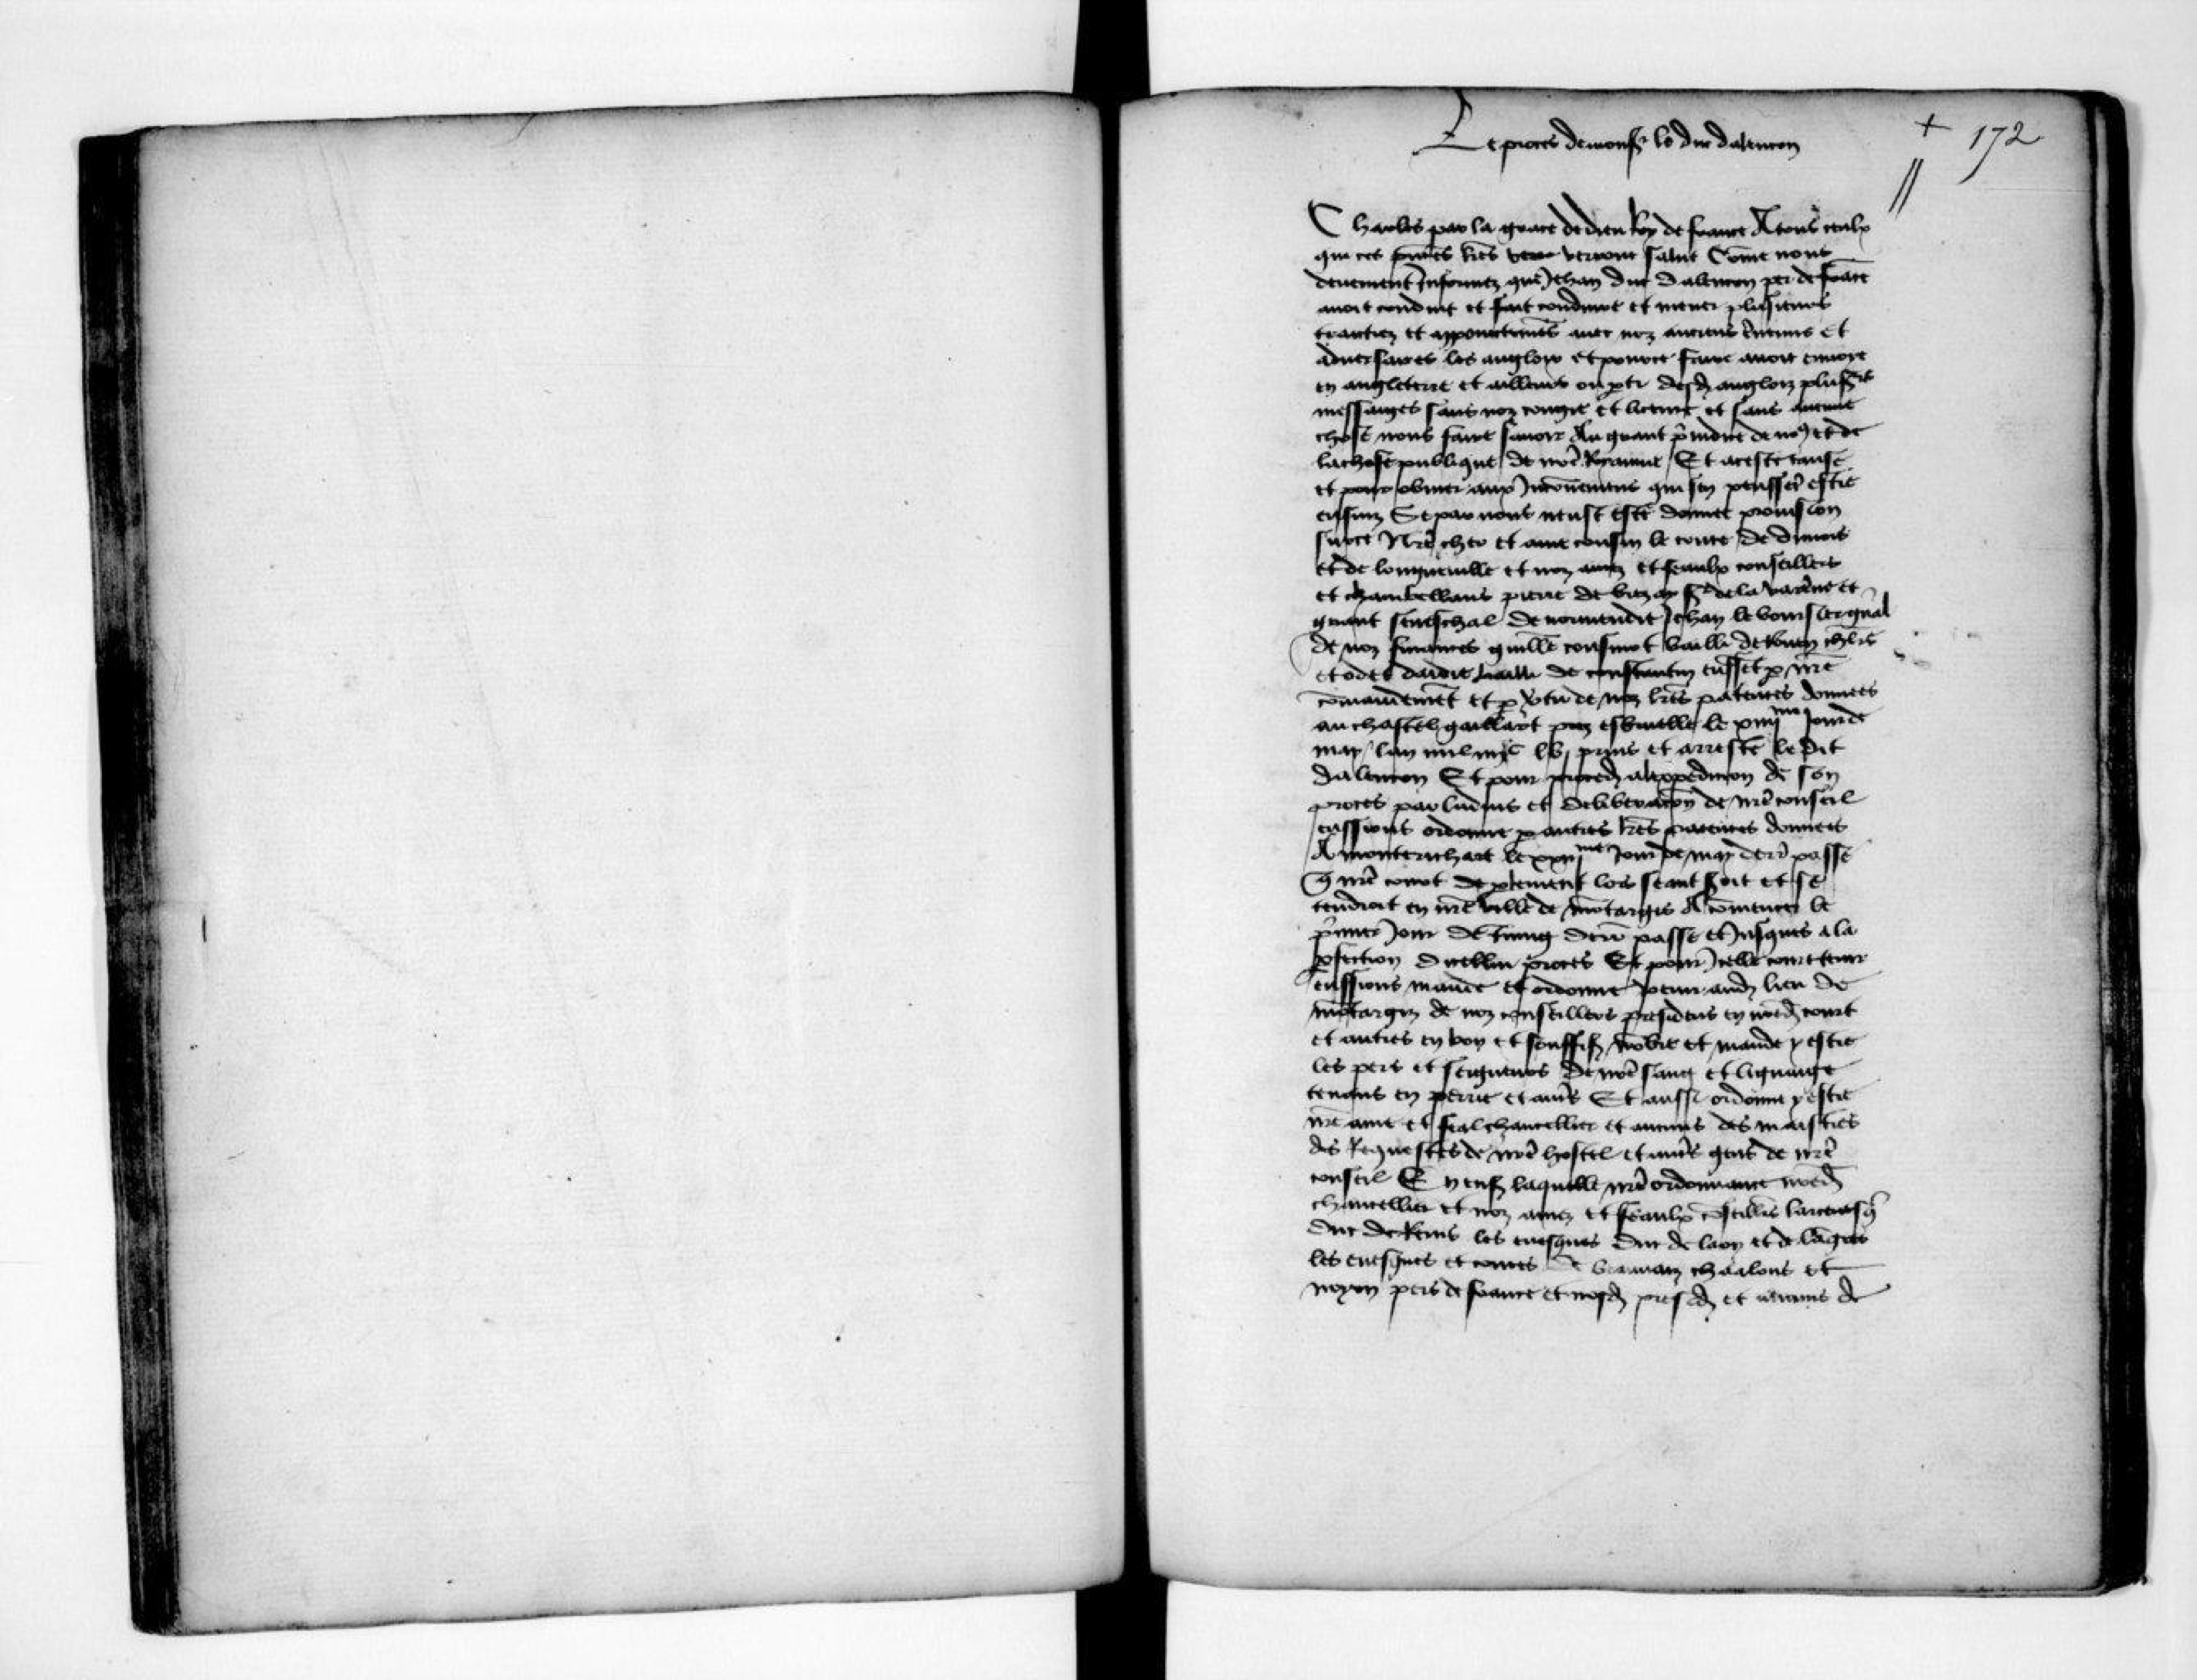 Le proces de monsr le duc dalencon
+ 172
Charles par la grace de dieu Roy de france A tous ceulx
qui ces pntes lres verront salut Come nous
deuement Informez que Jehan duc dalencon per de frace
auoit conduit et fait conduire et mener plusieurs
traictiez et appoinctemens auec noz anciens enemis et
aduersaires les anglois et pource faire auoit enuoye
en angleterre et ailleurs ou pti desd anglois plusrs
messaiges sans noz congie et licence et sans aucune
chose nous faire sauoir Au grant piudice de nous et de
la chose publique de nre Royaume Et a ceste cause
et pour obuier aux Inconueniens qui sen peussent estre
ensuiz Se par nous neust este donnee prouision
surce Nre cher et ame cousin le conte de dunois
et de longueuille et noz amez et feaulx conseillers
et chambellans pierre de breze sr de la varenne et
grant seneschal de normendie Jehan le boursier gnal
de noz finances guille cousinot bailli de Rouen chlrs
et odet daidie bailli de constantin eussent p nre
comandement et p vtu de noz lres patentes donnees
au chastel gaillart pres esbreulle le xxiiijme Jour de
may lan mil iiijc lvj prins et arreste le dit
dalencon Et pour proceder alexpedicion de son
proces par ladvis et deliberacon de nre conseil
eussions ordonne p autres lres patentes donnees
A montrichart le xxiijme Jour de may derr passe
q nre court de plement lors seant soit et se
tendroit en nre ville de motargis A comencer le
pmier Jour de Juing derr passe et Jusques a la
pfection dicellui proces Et pour Icelle court tenir
eussions mande et ordonne venir aud lieu de
motargis de noz conseillers presidens en nred court
et autres en bon et souffis nobre et mande y estre
les pers et seigneurs de nre sang et lignaige
tenans en perrie et autrs Et aussi ordonne y estre
nre ame et feal chancellier et aucuns des maistres
des Requestes de nre hostel et autrs gens de nre
conseil En ensr laquelle nre ordonnance nred
chancellier et noz amez et feaulx coseillrs larceuesq
duc de Reims les euesques duc de laon et de langres
les euesques et contes de beauuaiz chaalons et
noyon pers de france et nosd presid et aucuns de